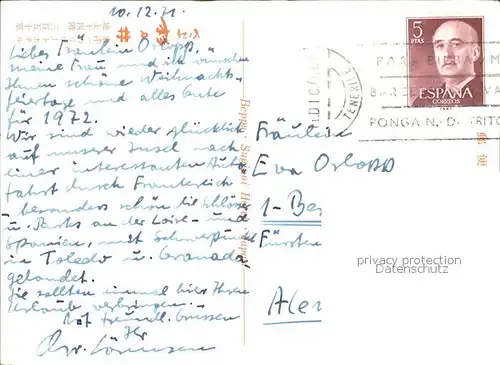 10.12.71.
Liebes Fräulein Orlopp,
meine Frau und ich wünschen
Ihnen schöne Weihnachts-
feiertage und alles Gute
für 1972.
Wir sind wieder glücklich
auf unserer Insel nach
einer interessanten Auto-
fahrt durch Frankreich
- besonders schön die Schlösser
u. Parks an der Loire - und
Spanien, mit Schwerpunkt
in Toledo u. Granada,
gelandet.
Sie sollten einmal hier Ihren
Urlaub verbringen.
Mit freundl. Grüssen
Ihr
Beppu Suginoi Hotel Japan
5
PTAS
ESPAÑA
CORREOS
TENERIFE
PARA
PONGA N. DISTRITO
Fräulein
Eva Orlopp
1-Ber
Fürsten
privacy protection
Datenschutz